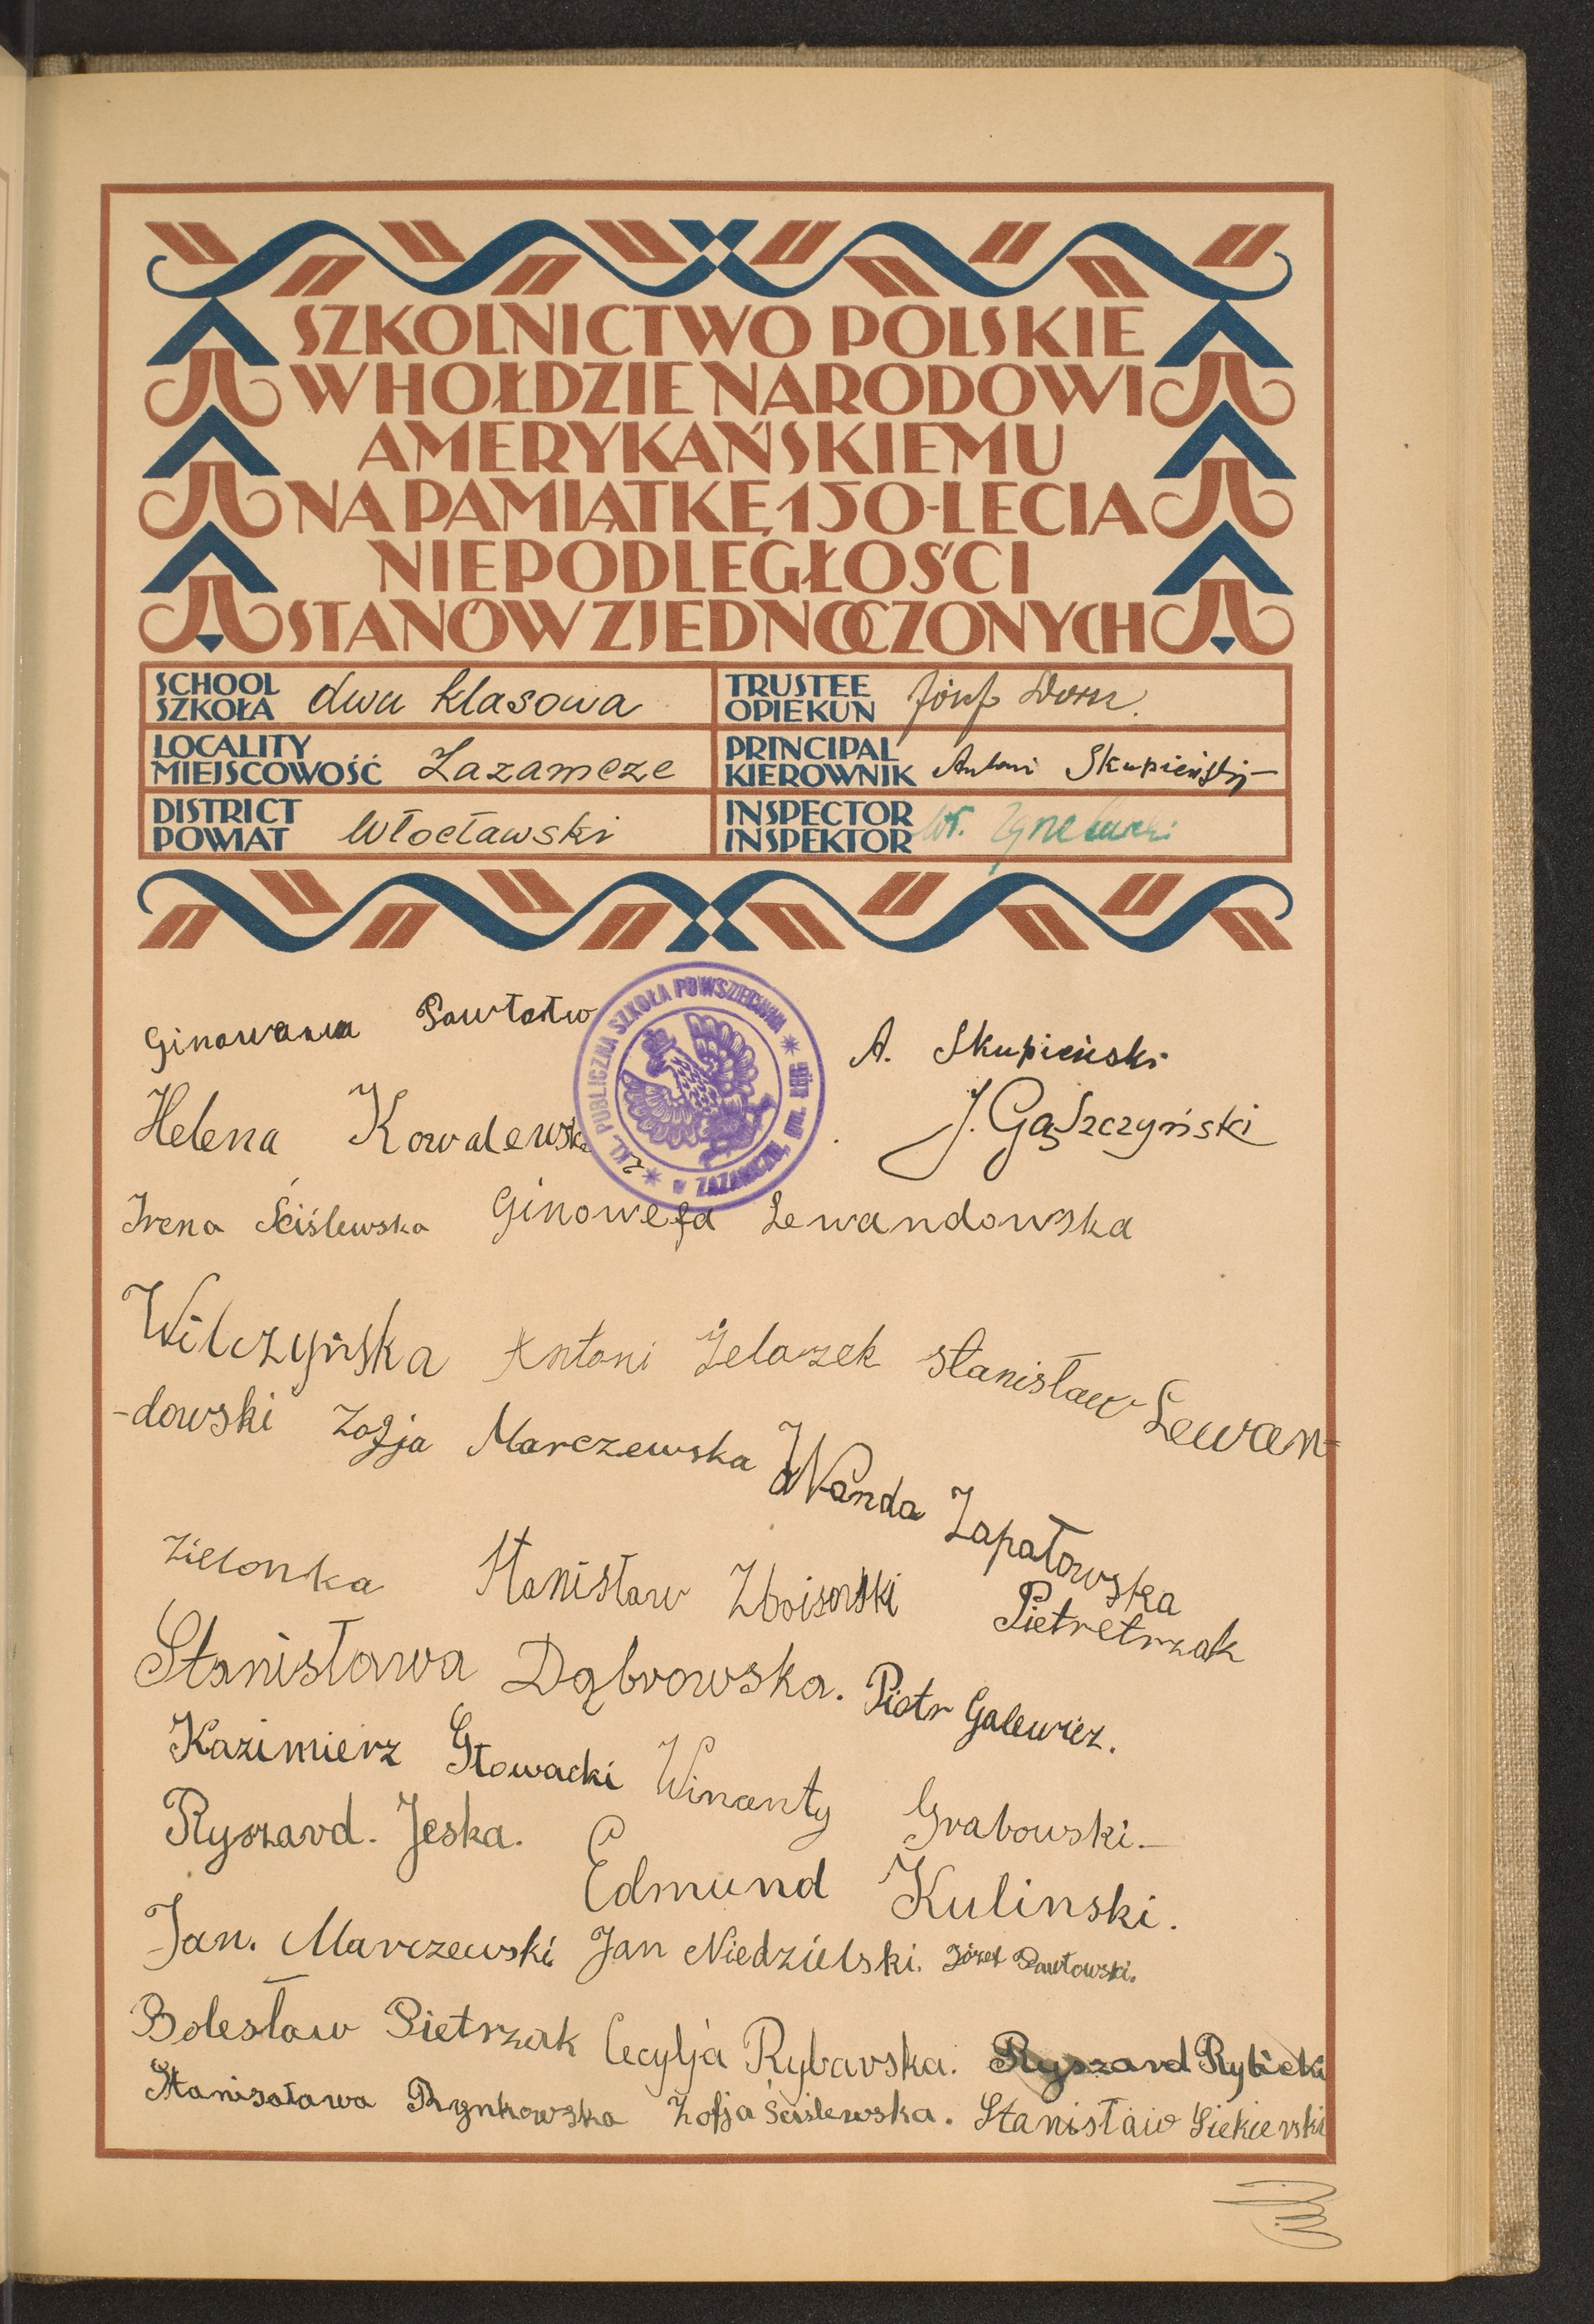 SZKOLNICTWO POLSKIE
W HOŁDZIE NARODOWI
AMERYKAŃSKIEMU
NA PAMIĄTKĘ 150-LECIA
NIEPODLEGŁOŚCI
STANÓW ZJEDNOCZONYCH
SCHOOL SZKOŁA dwu klasowa
TRUSTEE OPIEKUN Józef
LOCALITY MIEJSCOWOŚĆ Zazamcze
PRINCIPAL KIEROWNIK Antoni Skupieński
DISTRICT POWIAT Włocławski
INSPECTOR INSPEKTOR
2 KL. PUBLICZNA SZKOŁA POWSZECHNA
w ZAZAMCZU,
A. Skupieński
Helena Kowalewska
J. Gąszczyński
Irena Ściślewska Ginowefa Lewandowska
Wilczyńska Antoni Żelazek Stanisław Lewan-
-dowski Zofja Marczewska Wanda Zapałowska
Zielonka Stanisław Pietretrzak
Stanisława Dąbrowska. Piotr Galewicz.
Kazimierz Głowacki Winanty Grabowski.
Ryszard. Jeska.
Edmund Kulinski.
Jan. Marczewski Jan Niedzielski. Józef Pawłowski.
Bolesław Pietrzak Cecylja Rybarska. Ryszard Rybicki
Stanisałowa Rynkowska Zofja Ściślewska. Stanisław Siekierski